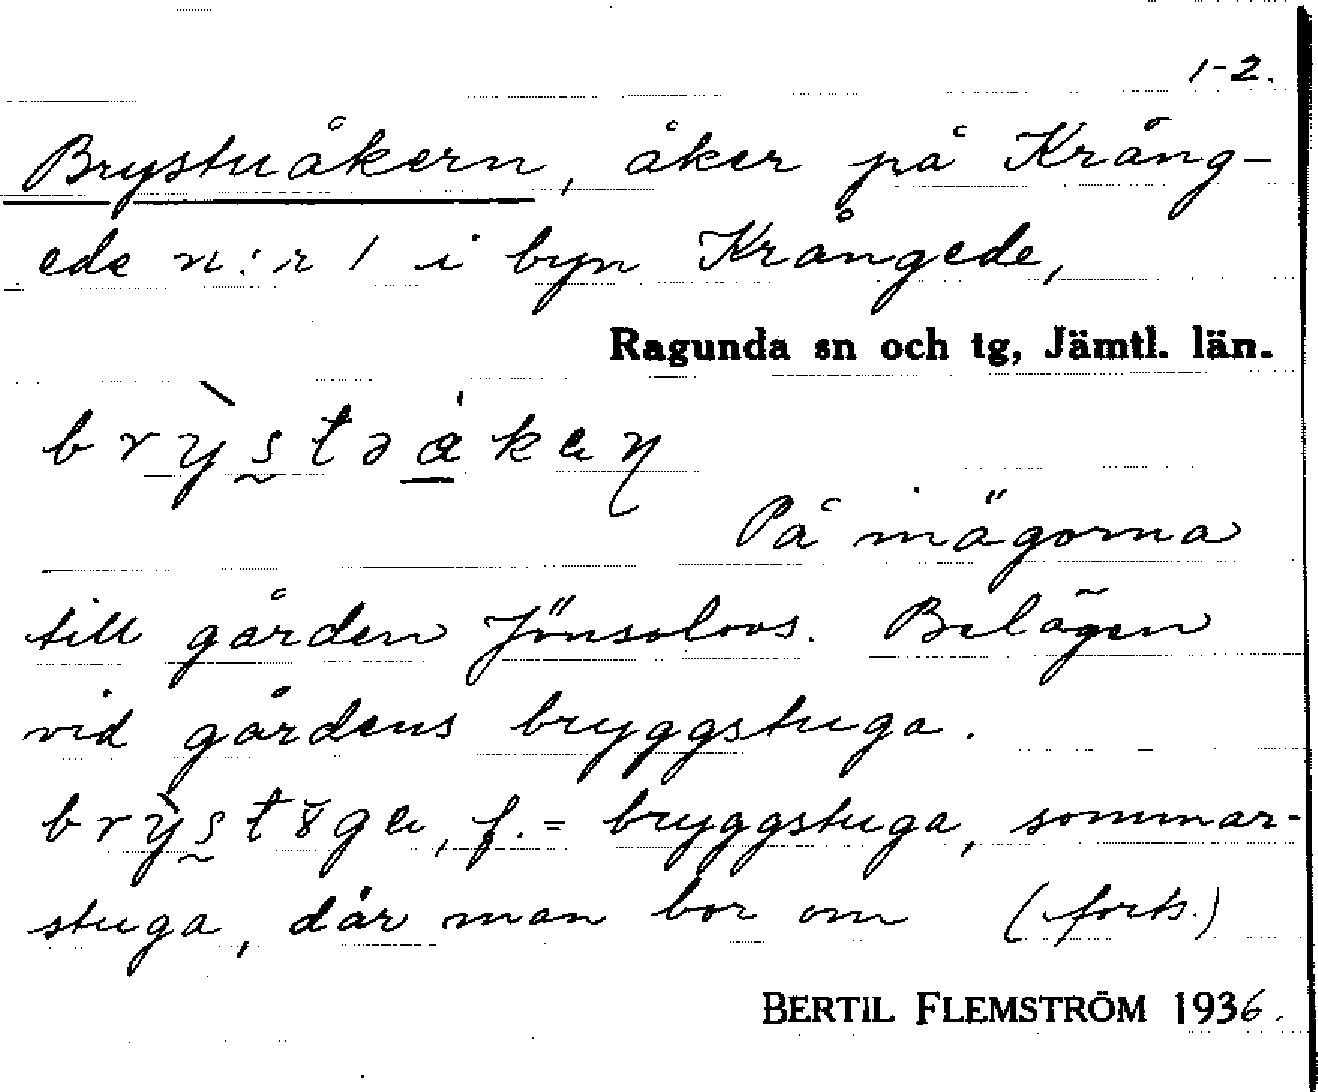 1-2.
Brystuåkern, åker på Krång-
ede n:r 1 i byn Krångede,
Ragunda sn och tg, Jämtl. län.
På inägorna
till gården Jönsoloos. Belägen
vid gårdens bryggstuga.
f. = bryggstuga, sommar-
stuga, där man bor om (forts.)
BERTIL FLEMSTRÖM 1936.